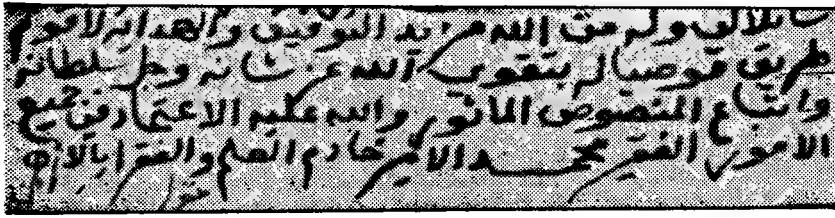 من الله مزيد التوفيق والهداية لاقوم
طريق فوصيا له بتقوى الله عز شانه وجل سلطانه
واتباع المنصوص الماثور والله عليه الاعتماد في جميع
الامور الفقير محمد الامير خادم العلم والفقرا بالازهر